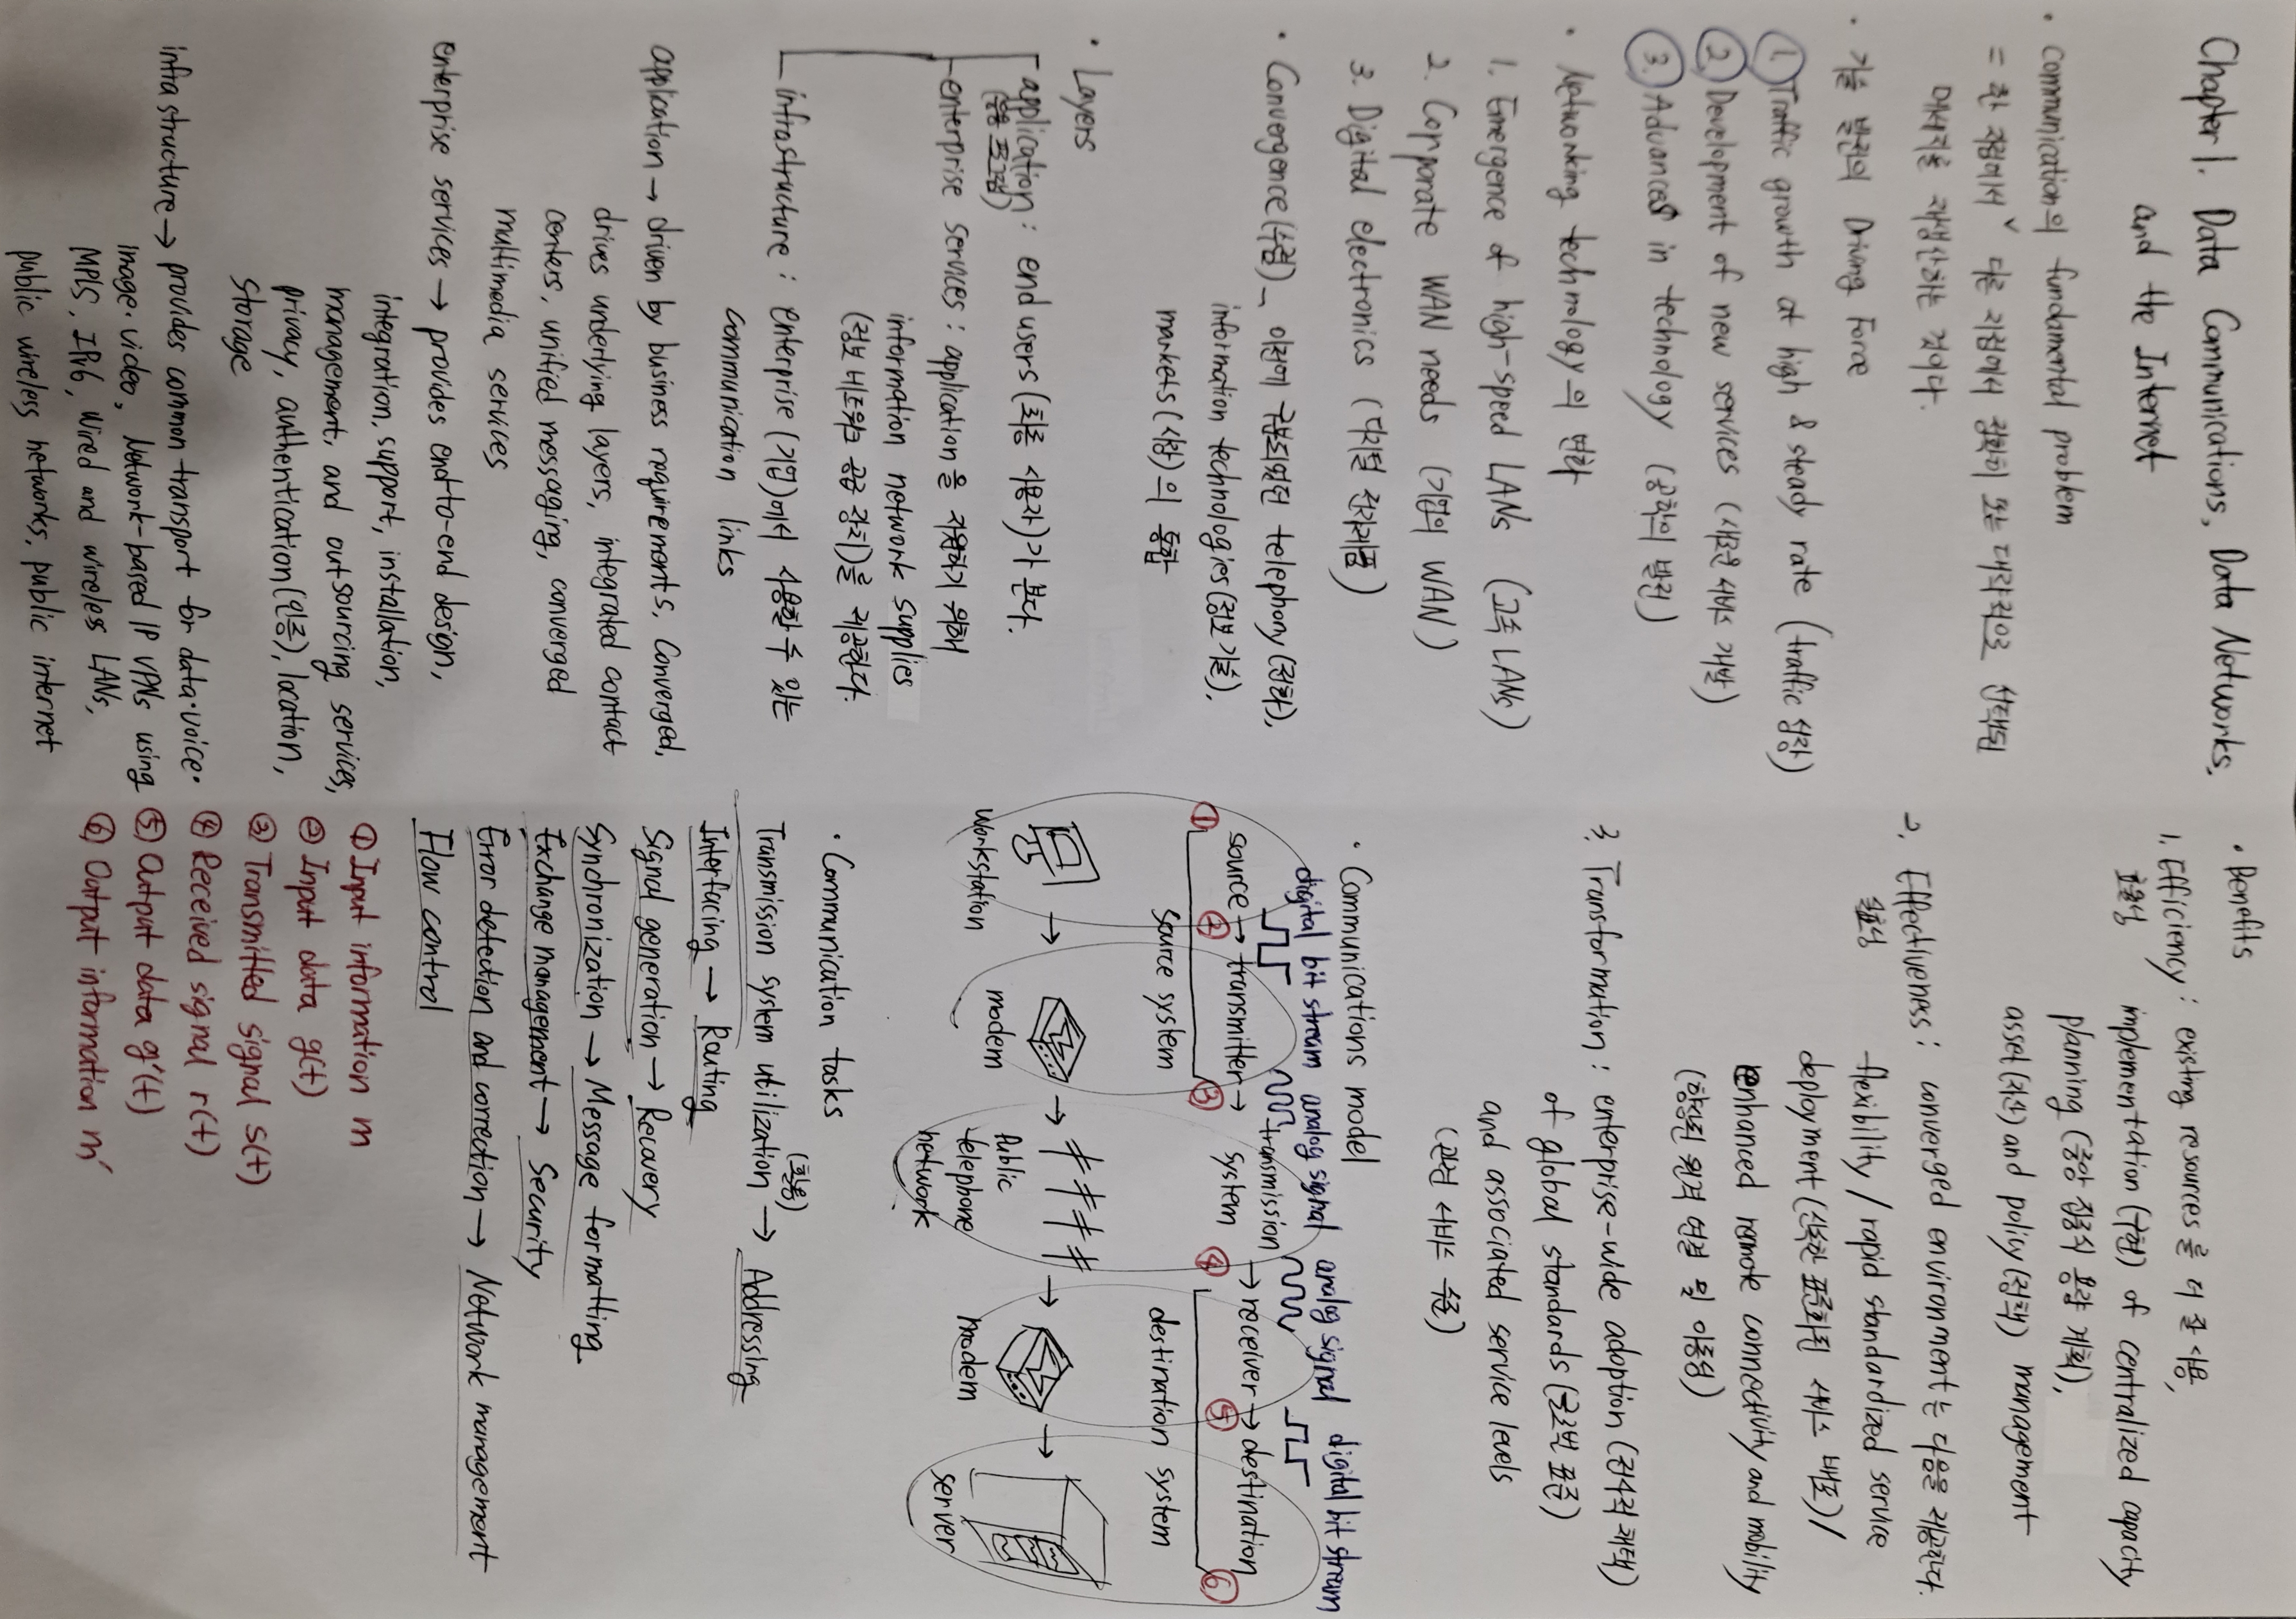 Chapter 1. Data Communications, Data Networks,
and the Internet
· communication의 fundamental problem
= 한 지점에서 ˅ 다른 지점에서 정확히 또는 대략적으로 선택된
메세지를 재생산하는 것이다.
· 기술 발전의 Driving Force
① Traffic growth at high & steady rate (traffic 성장)
② Development of new services (새로운 서비스 개발)
③ Advances in technology (공학의 발전)
· Networking technology의 변화
1. Emergence of high-speed LANs (고속 LANs)
2. Corporate WAN needs (기업의 WAN)
3. Digital electronics (디지털 전자제품)
· Convergence(수렴) _ 이전에 구분되었던 telephony(전화),
information technologies(정보기술),
markets(시장)의 통합
· Layers
application : end users(최종 사용자)가 본다.
(응용 프로그램)
enterprise services : application을 지원하기 위해
information network supplies
(정보 네트워크 공급 장치)를 제공한다.
infrastructure : enterprise(기업)에서 사용할 수 있는
communication links
application → driven by business requirements, Converged,
drives underlying layers, integrated contact
centers, unified messaging, converged
multimedia services
enterprise services → provides end-to-end design,
integration, support, installation,
management, and outsourcing services,
privacy, authentication(인증), location,
storage
infrastructure → provides common transport for data·voice·
image·video, Network-based IP VPNs using
MPLS, IPv6, Wired and wireless LANs,
public wireless networks, public internet
· Benefits
1. Efficiency : existing resources를 더 잘 사용,
효율성
implementation (구현) of centralized capacity
planning (중앙 집중식 용량 계획),
asset(자산) and policy(정책) management
2. Effectiveness : converged environment는 다음을 제공한다.
실효성
flexibility / rapid standardized service
deployment (신속한 표준화된 서비스 배포) /
enhanced remote connectivity and mobility
(향상된 원격 연결 및 이동성)
3. Transformation : enterprise-wide adoption (전사적 채택)
of global standards (글로벌 표준)
and associated service levels
(관련 서비스 수준)
· Communications model
digital bit stream analog signal analog signal digital bit stream
source → transmitter → transmission system → receiver → destination
① ② ③ ④ ⑤ ⑥
source system destination system
workstation → modem → Public telephone network → modem → server
· Communication tasks
(활용)
Transmission system utilization → Addressing
Interfacing → Routing
Signal generation → Recovery
Synchronization → Message formatting
Exchange management → Security
Error detection and correction → Network management
Flow control
① Input information m
② Input data g(t)
③ Transmitted signal s(t)
④ Received signal r(t)
⑤ Output data g'(t)
⑥ Output information m'